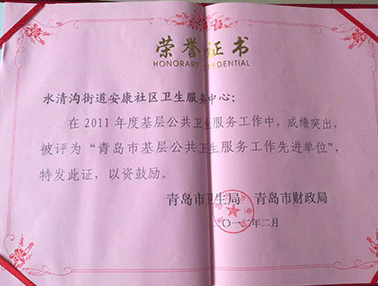 荣誉证书
HONORARY CREDENTIAL
水清沟街道安康社区卫生服务中心：
在2011年度基层公共卫生服务工作中，成绩突出，
被评为“青岛市基层公共卫生服务工作先进单位”，
特发此证，以资鼓励。
青岛市卫生局 青岛市财政局
二〇一二年二月